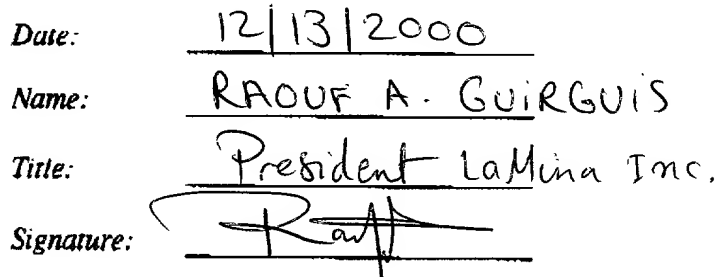 Date: 12|13|2000
Name: RAOUF A. GUIRGUIS
Title: President LaMina Inc.
Signature: Raouf